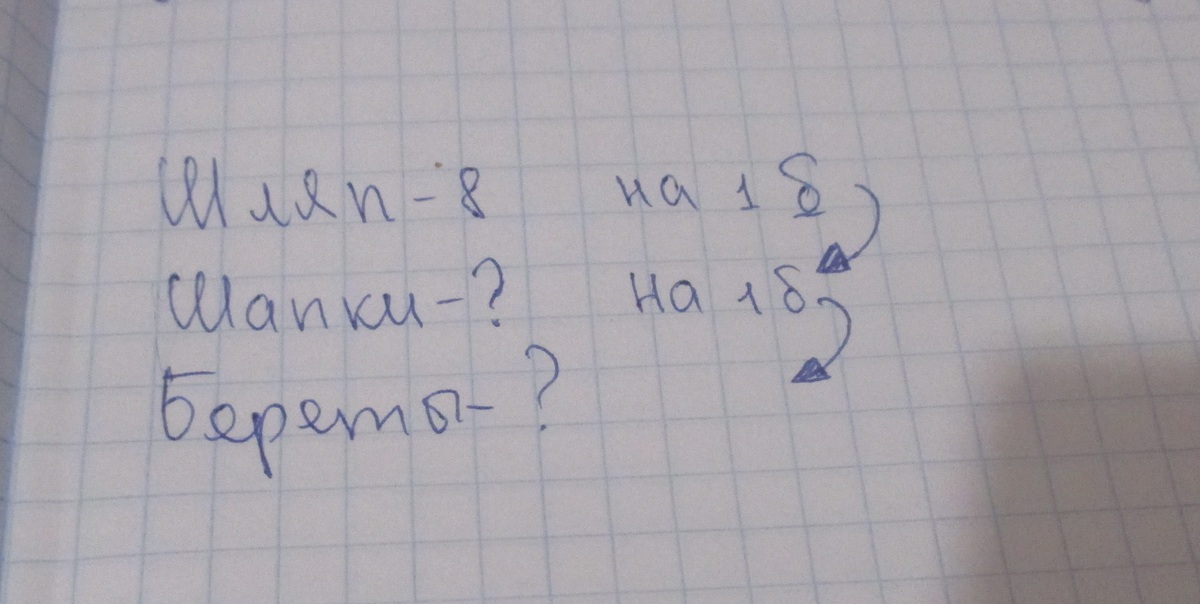 Шляп - 8 на 1 б
Шапки - ? на 1 б
Береты - ?